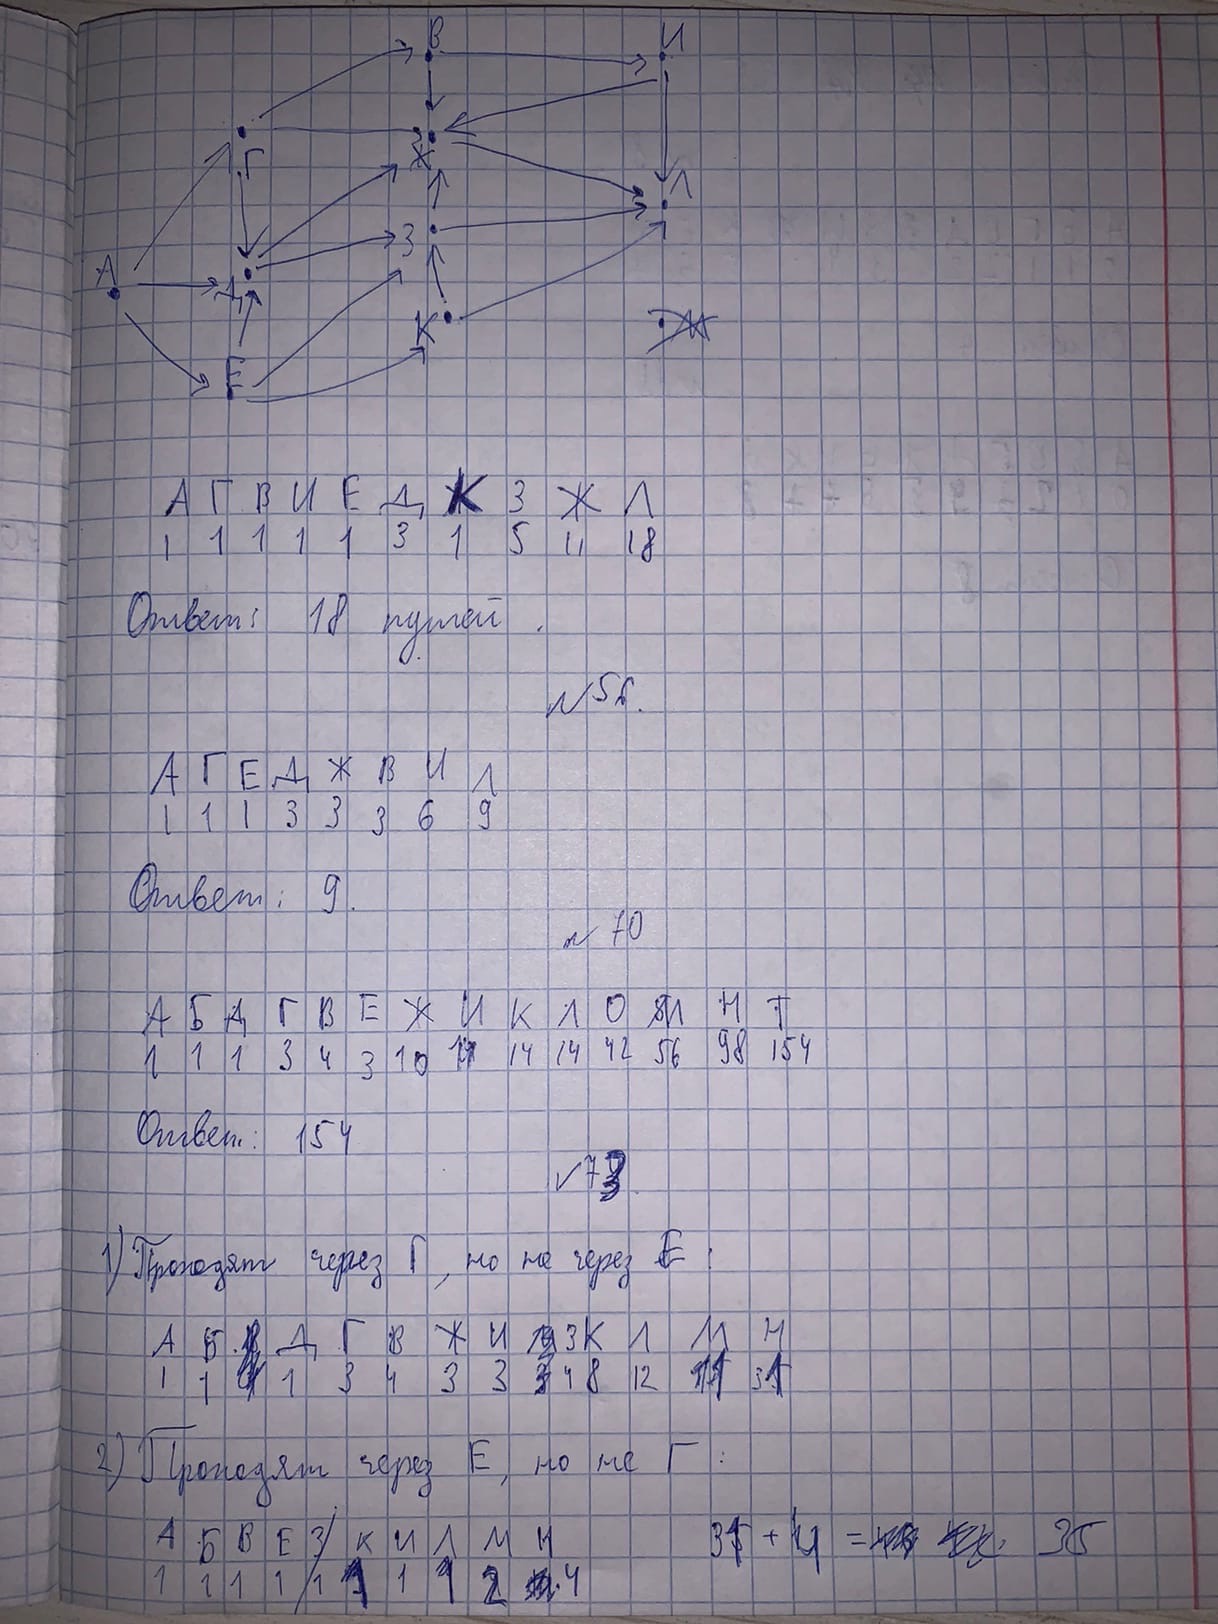 В И
Г Ж
А Л
Д З
К
Е
А Г В И Е Д К З Ж Л
1 1 1 1 1 3 1 5 11 18
Ответ: 18 путей.
А Г Е Д Ж В И Л
1 1 1 3 3 3 6 9
Ответ: 9.
№ 70
А Б Д Г В Е Ж И К Л О М Н Т
1 1 1 3 4 3 10 14 14 14 42 56 98 154
Ответ: 154
№ 73.
1) Проходят через Г, но не через Е:
А Б Д Г В Ж И З К Л М Н
1 1 1 3 4 3 3 4 8 12
2) Проходят через Е, но не Г:
А Б В Е З К И Л М Н
1 1 1 1 1 1 1 1 2 4
31 + 4 = 35